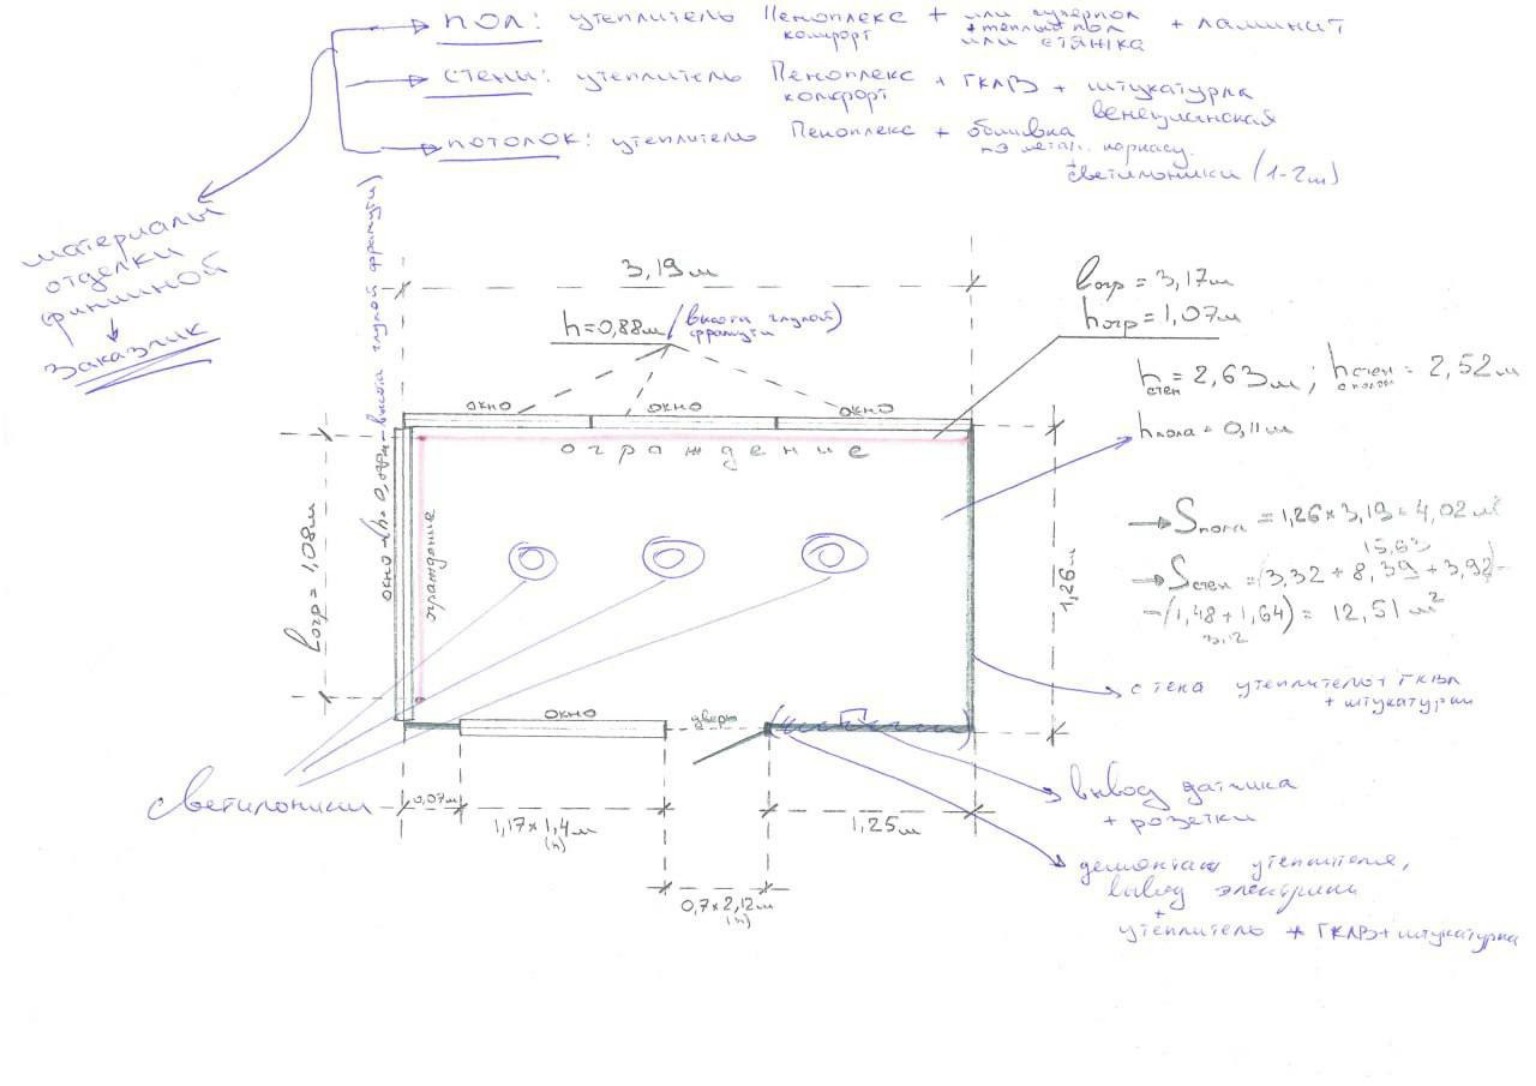 пол: утеплитель Пеноплекс комфорт + или суперпол + теплый пол или стяжка + ламинат
стены: утеплитель Пеноплекс комфорт + ГКЛВ + штукатурка венецианская
потолок: утеплитель Пеноплекс + обшивка по метал. каркасу + светильники (1-2шт)
материалы
отделки
финишной
заказчик
3,19м
h=0,88м (высота глухой фрамуги)
bогр = 3,17м
hогр = 1,07м
hстен = 2,63м; hстен = 2,52м
hпола = 0,11м
окно
окно
окно
ограждение
ограждение
окно
высота глухой фрамуги)
bогр = 1,08м
1,26м
→ Sпола = 1,26×3,19=4,02м²
15,63
→ Sстен = (3,32 + 8,39 + 3,92)-
-(1,48+1,64) = 12,51м²
3,12
стена утеплитель+ГКВЛ
+ штукатурки
окно
дверь
светильники
0,07м
1,17×1,4м
(h)
1,25м
0,7×2,12м
(h)
вывод датчика
+ розетки
демонтаж утеплителя,
вывод электрики
+
утеплитель + ГКЛВ + штукатурка